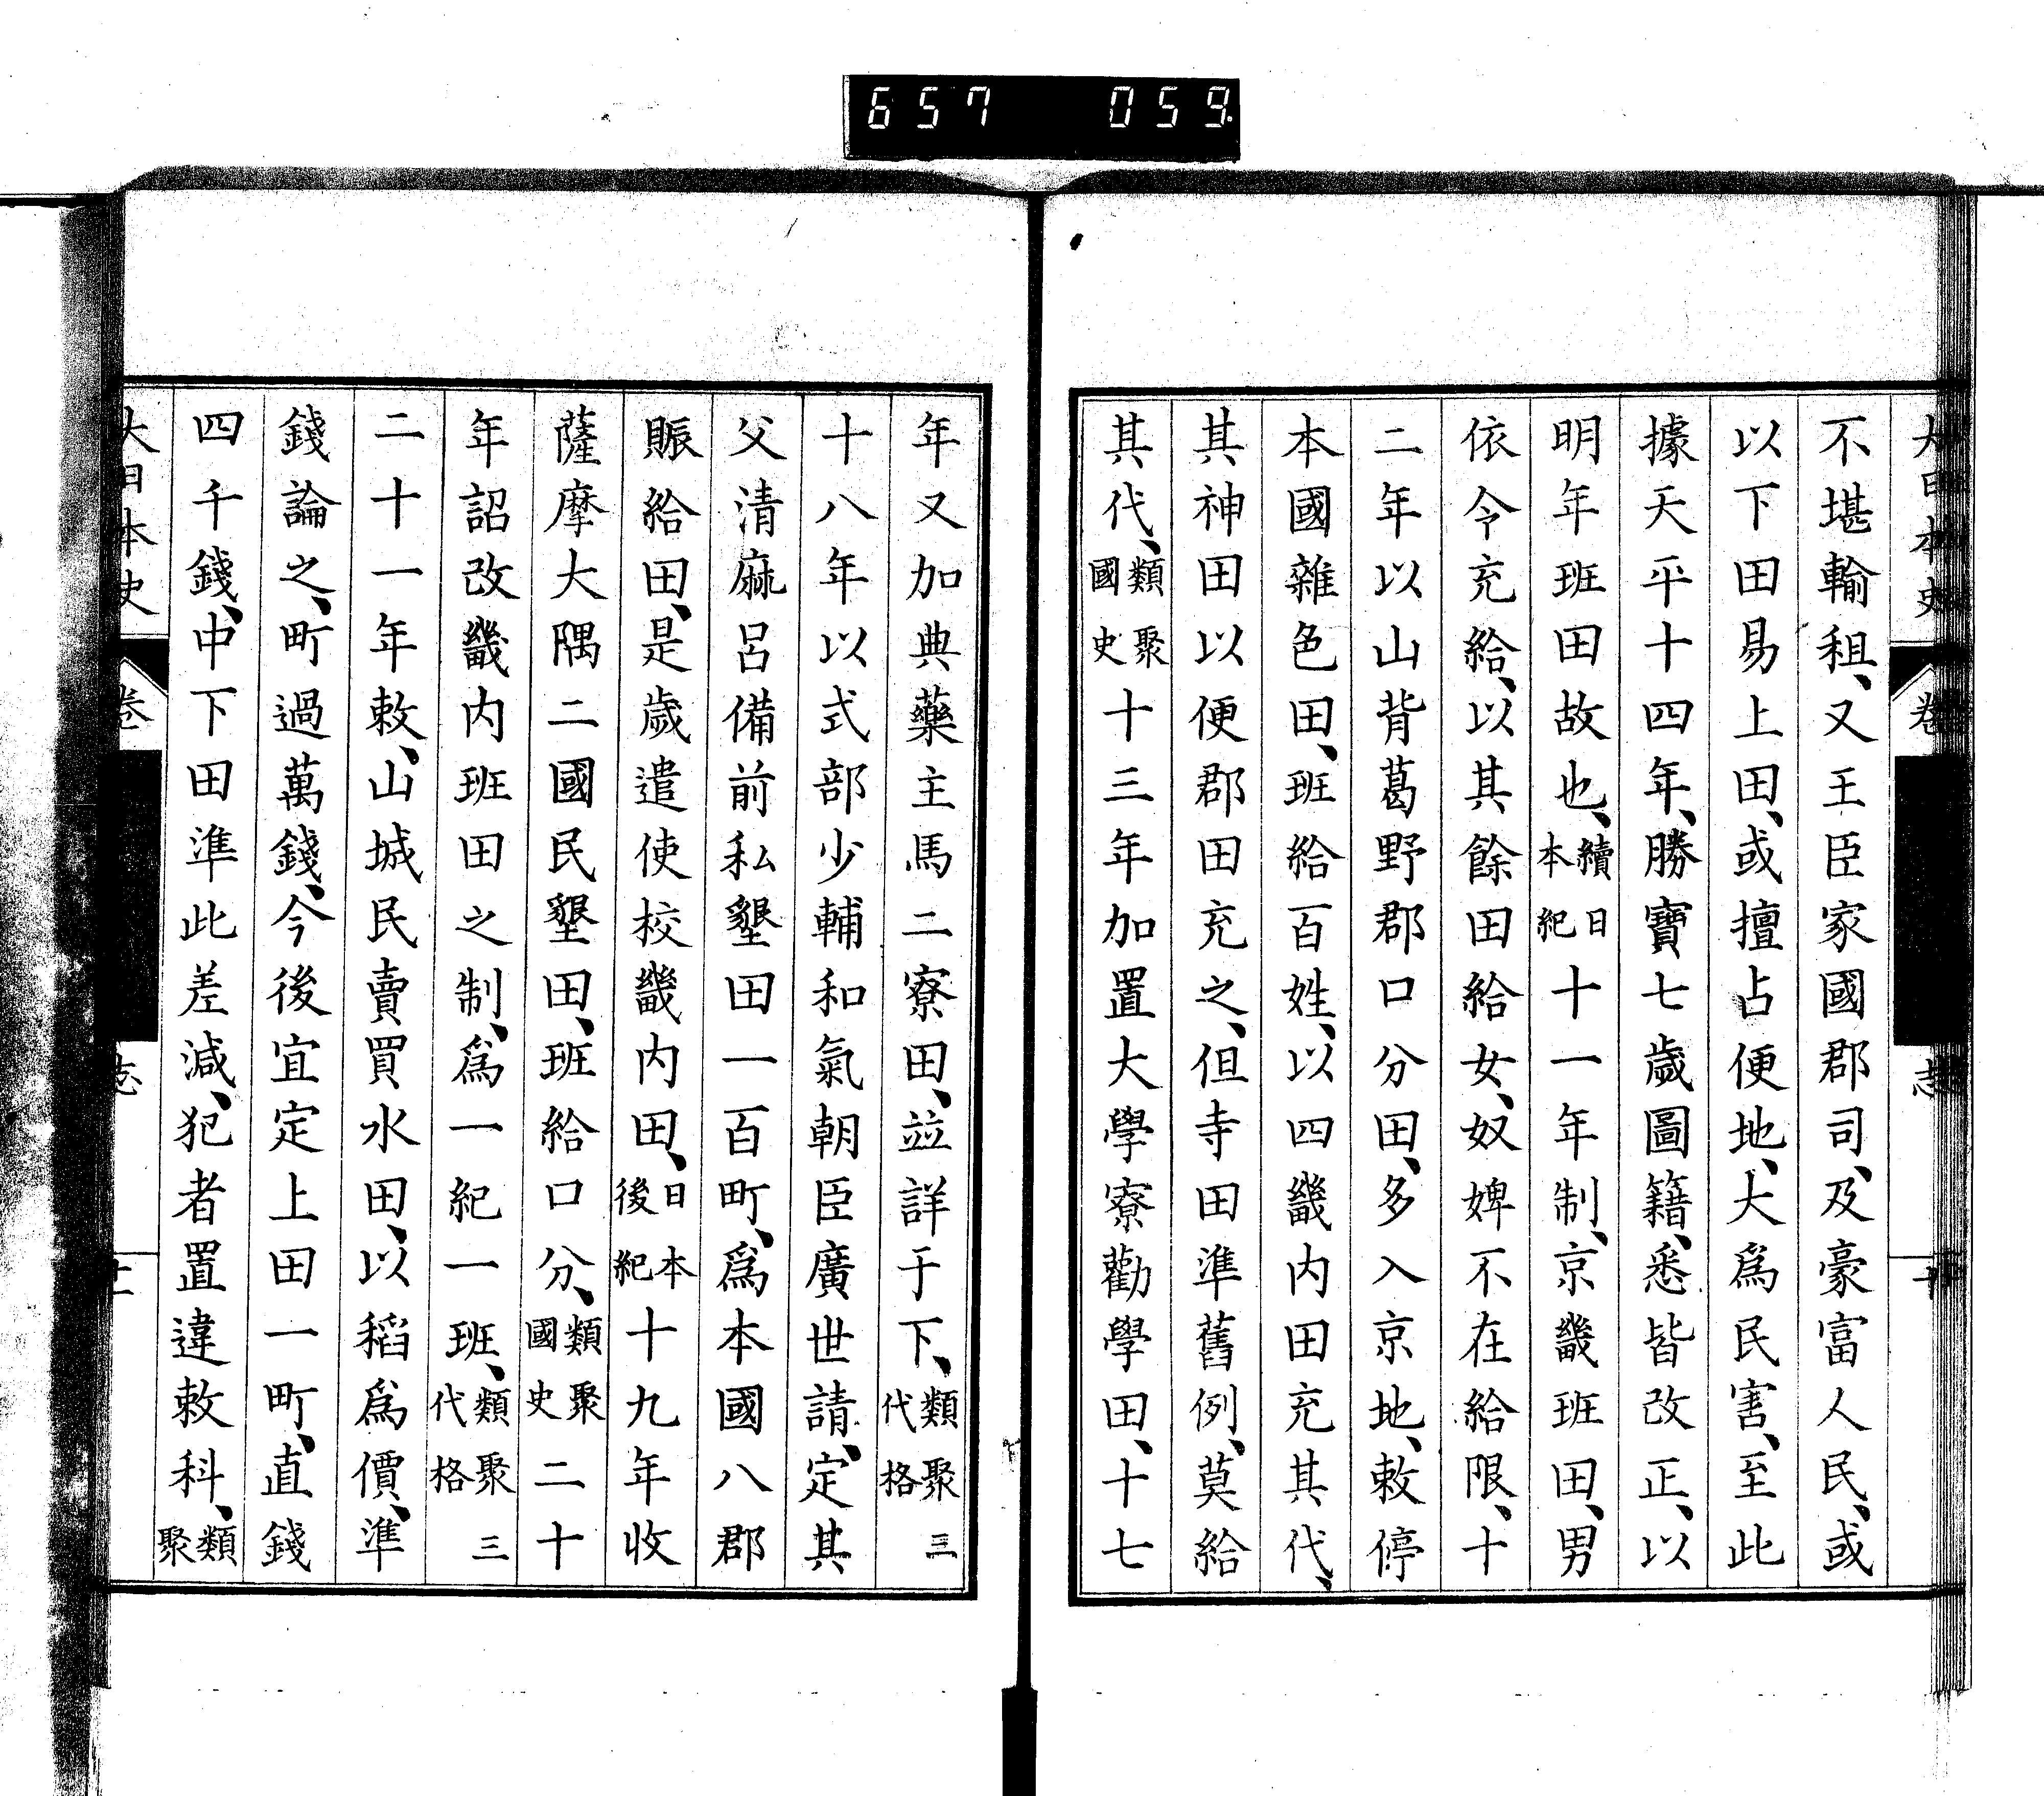 657 059
大日本史 卷 志 十
不堪輸租、又王臣家國郡司、及豪富人民、或
以下田易上田、或擅占便地、大爲民害、至此
據天平十四年、勝寶七歲圖籍、悉皆改正、以
明年班田故也、續日本紀十一年制、京畿班田、男
依令充給、以其餘田給女、奴婢不在給限、十
二年以山背葛野郡口分田、多入京地、敕停
本國雜色田、班給百姓、以四畿内田充其代、
其神田以便郡田充之、但寺田準舊例、莫給
其代、類聚國史十三年加置大學寮勸學田、十七
年又加典藥主馬二寮田、竝詳于下、類聚三代格
十八年以式部少輔和氣朝臣廣世請、定其
父清麻呂備前私墾田一百町、爲本國八郡
賑給田、是歲遣使校畿内田、日本後紀十九年收
薩摩大隅二國民墾田、班給口分、類聚國史二十
年詔改畿内班田之制、爲一紀一班、類聚三代格
二十一年敕、山城民賣買水田、以稻爲價、準
錢論之、町過萬錢、今後宜定上田一町、直錢
四千錢、中下田準此差減、犯者置違敕科、類聚
大日本史 卷 志